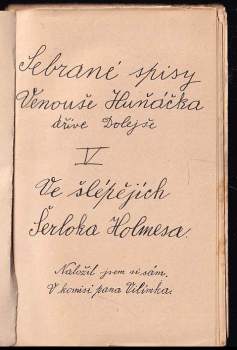 Sebrané spisy
Venouše Huňáčka
dříve Dolejše
V
Ve šlépějích
Šerloka Holmesa.
Naložil jsem si sám.
V komisi pana Vilímka.